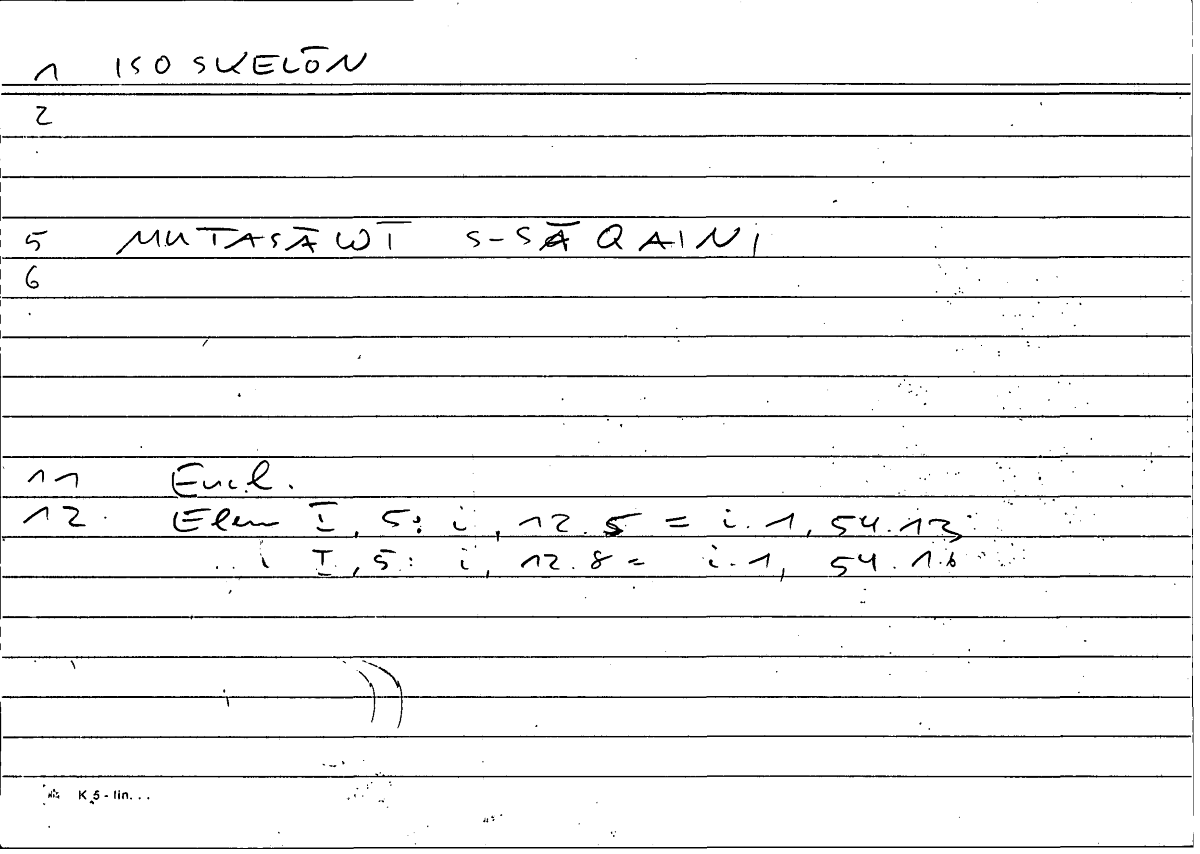 1 ISOSKELŌN
2
5 MUTASĀWĪ S-SĀQAINI
6
11 Eucl.
12. Elem I, 5: i, 12.5 = i.1, 54.13
I, 5: i, 12.8 = i.1, 54.16
K 5 - lin...